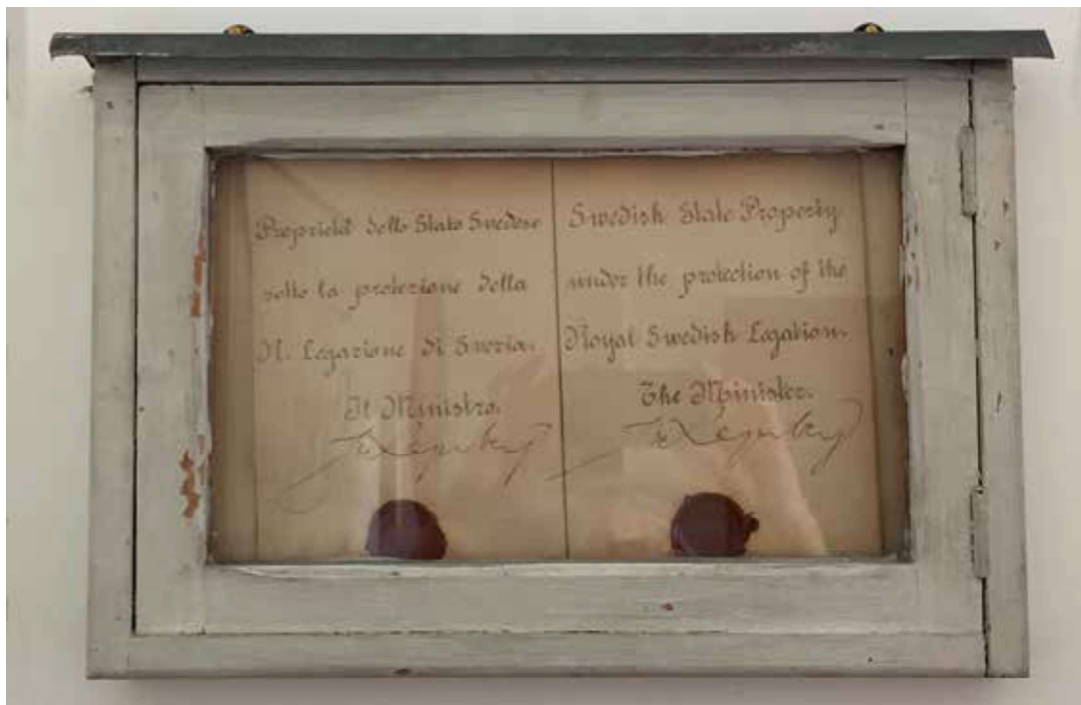 Proprietà dello Stato Svedese
sotto la protezione della
R. Legazione di Svezia.
Il Ministro.
Swedish State Property
under the protection of the
Royal Swedish Legation.
The Minister.